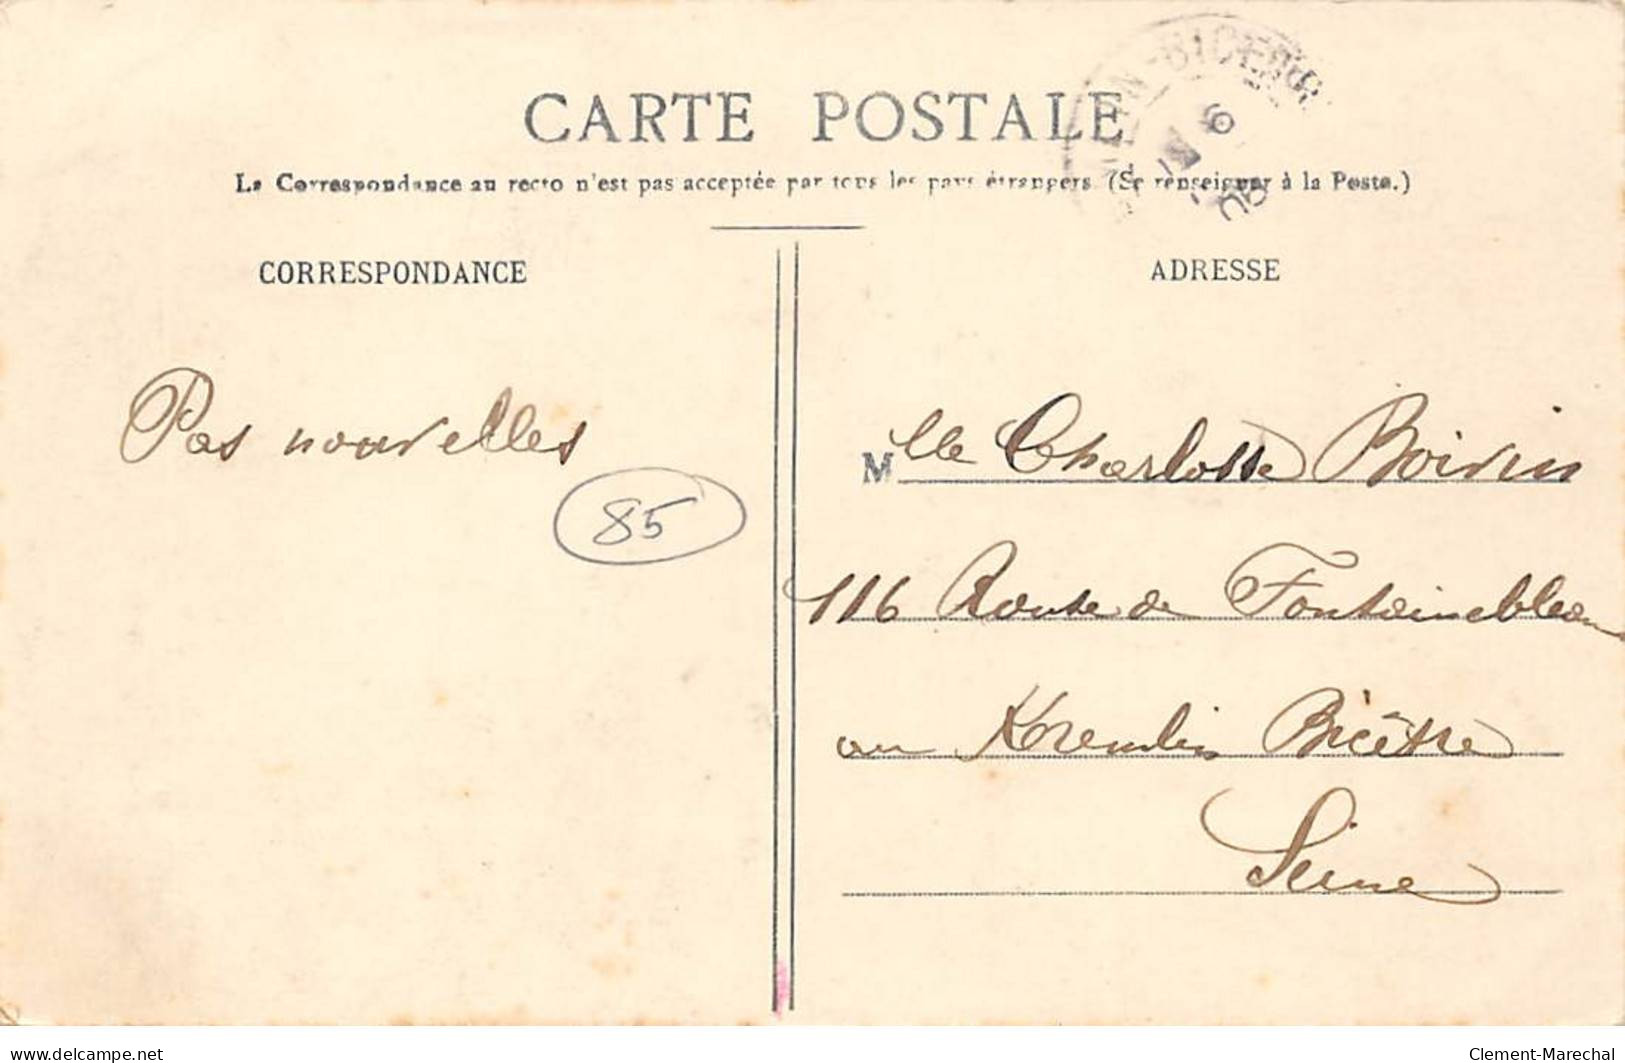 CARTE POSTALE
La Correspondance au recto n'est pas acceptée par tous les pays étrangers. (Se renseigner à la Poste.)
CORRESPONDANCE
ADRESSE
Pas nouvelles
85
Mlle Charlotte Boivin
116 Route de Fontainebleau
au Kremlin Bicêtre
Seine
delcampe.net
Clement-Marechal